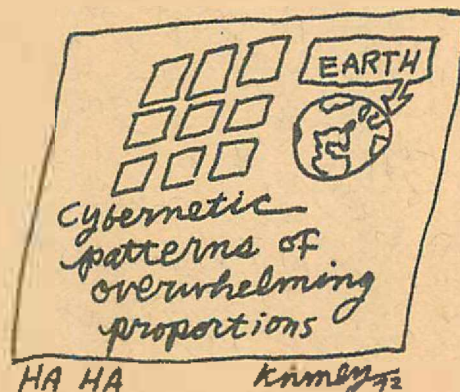 EARTH
cybernetic
patterns of
overwhelming
proportions
HA HA